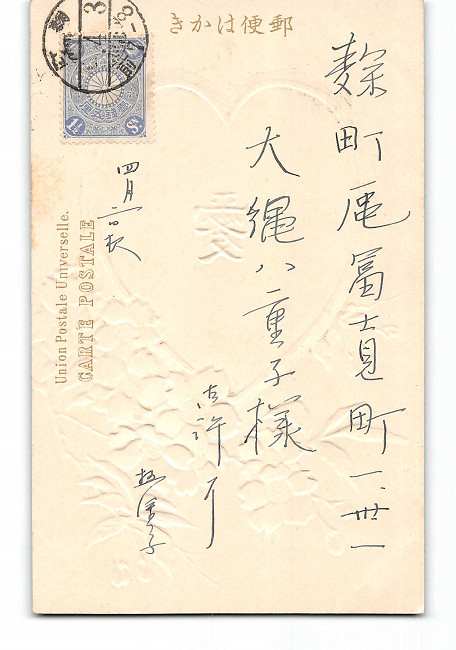 きかは便郵
麹町區冨士見町一、卅一
大縄八重子様
御許へ
四月二日夜
Union Postale Universelle.
CARTE POSTALE
愛
1½ Sn